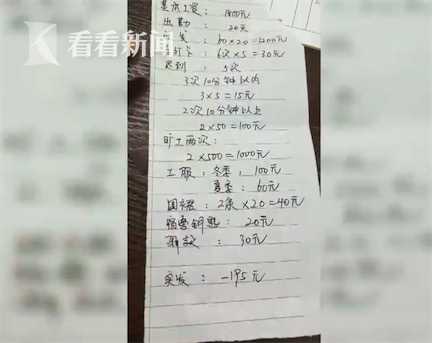 看看新闻
基本工资: 1800元
出勤: 20天
: 60×20=1200元
打卡: 6次×5=30元
迟到: 5次
3次10分钟以内
3×5=15元
2次10分钟以上
2×50=100元
旷工两次:
2×500=1000元
工服: 冬季: 100元
夏季: 60元
围裙: 2条×20=40元
宿舍钥匙: 20元
: 30元
实发: -195元